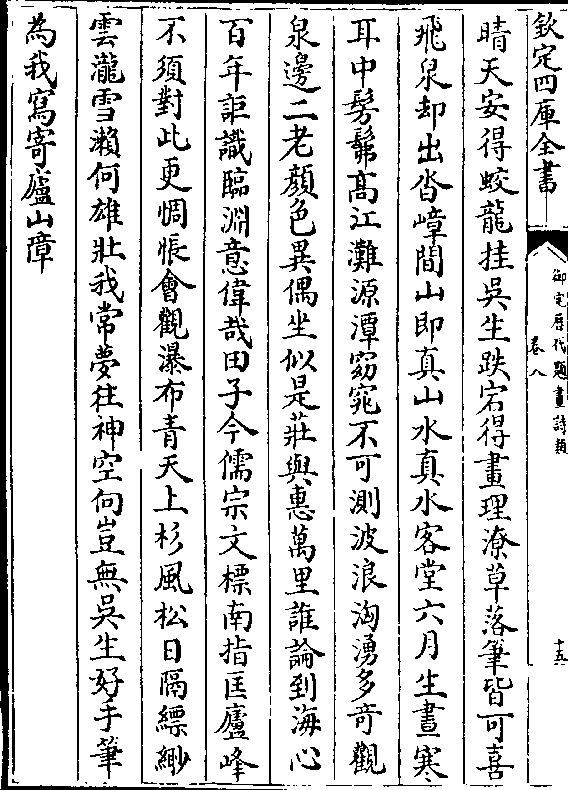 欽定四庫全書
御定歷代題畫詩類
卷八
十五
晴天安得蛟龍挂吳生跌宕得畫理潦草落筆皆可喜
飛泉却出沓嶂間山即真山水真水客堂六月生晝寒
耳中髣髴高江灘源潭窈窕不可測波浪洶湧多奇觀
泉邊二老顏色異偶坐似是莊與惠萬里誰論到海心
百年詎識臨淵意偉哉田子今儒宗文標南指匡廬峰
不須對此更惆悵會觀瀑布青天上杉風松日隔縹緲
雲瀧雪瀨何雄壯我常夢往神空向豈無吳生好手筆
為我寫寄廬山障